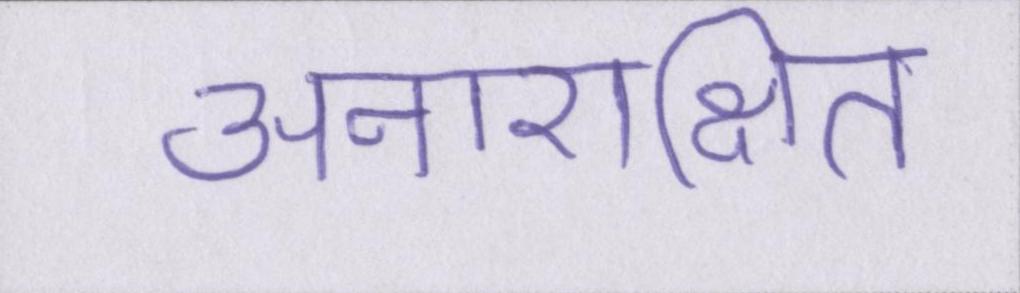 अनाराक्षित